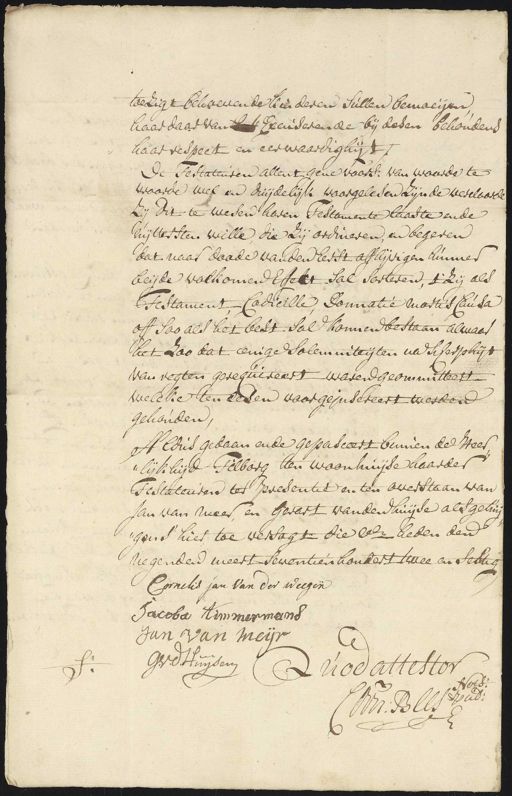 toezigt behoevende kinderen sullen bemoeijen,
haar daar van Excuseerende bij desen behoudens
haar respect en eerwaardighijt /
De Testateuren allent gene voorsz: van woorde te
woorde wel en duijdelijk voorgelesen Zijnde verclaarde
Zij Dit te wesen haren Testamente laaste ende
uijttersten wille die Zij ordineren, en begeren
dat naar doode vanden Eerst afflijvigen hunner
beijde volkomen Effect sal sorteren, 't Zij als
Testament Codicille, Donatie mortis Causa
off soo als het best sal konnen bestaan alwaar
het Zoo dat eenige solemniteijten na
van regten gerequireert waren geommitteert
welcke ten desen voor geinsereert werden
gehouden,
Aldus gedaan ende gepasseert binnen de Heer
lijkhijd Tilborg ten woonhuijse haarder
Testateuren ter presentie en ten overstaan van
Jan van meer en Gerart vanden Huijse als getuij
gen hier toe versogt die heden den
negenden meert seventien hondert twee en Sestig
Cornelis jan Van der weegen
Jacoba timmermans
jan van meijr
GvdHuijsen
Quod attestor
Corn: Bles Not: